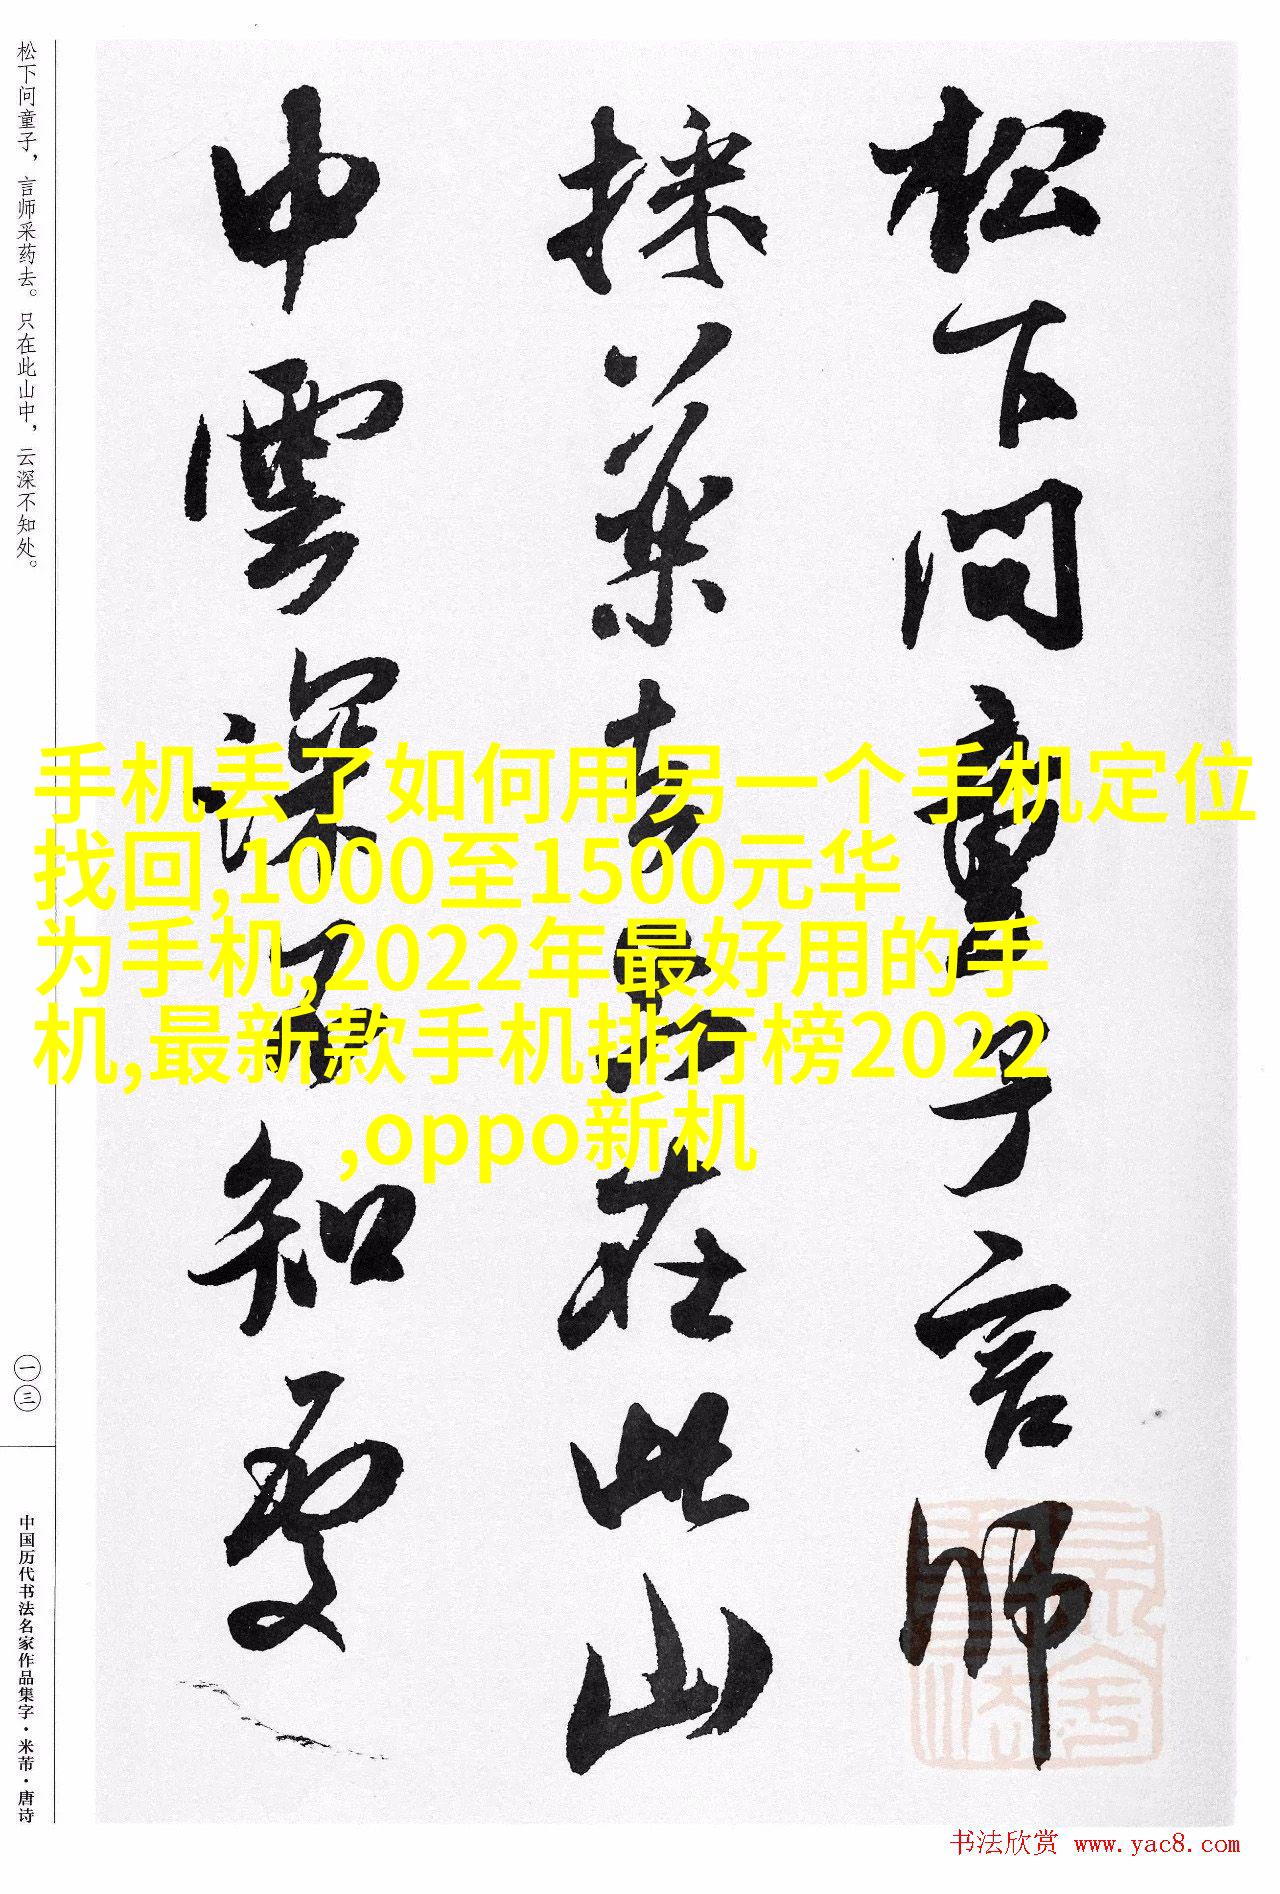 松下问童子言师
採药去只在此山
中雲深不知处
手机丢了如何用另一个手机定位
找回,1000至1500元华
为手机,2022年最好用的手
机,最新款手机排行榜2022
,oppo新机
松下问童子，言师采药去。只在此山中，云深不知处。
一三
中国历代书法名家作品集字·米芾·唐诗
书法欣赏 www.yac8.com